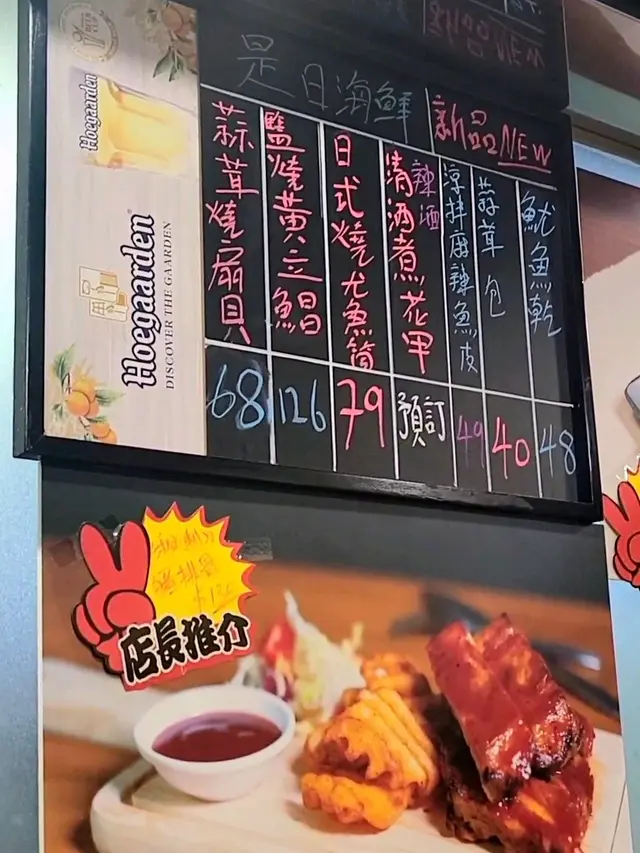 NEW
是日海鮮
新品NEW
Hoegaarden
Hoegaarden
DISCOVER THE GAARDEN
蒜茸燒扇貝
68
鹽燒黃立鯧
126
日式燒尤魚筒
79
清酒煮花甲
辣酒
預訂
涼拌麻辣魚皮
49
蒜茸包
40
魷魚乾
48
店長推介